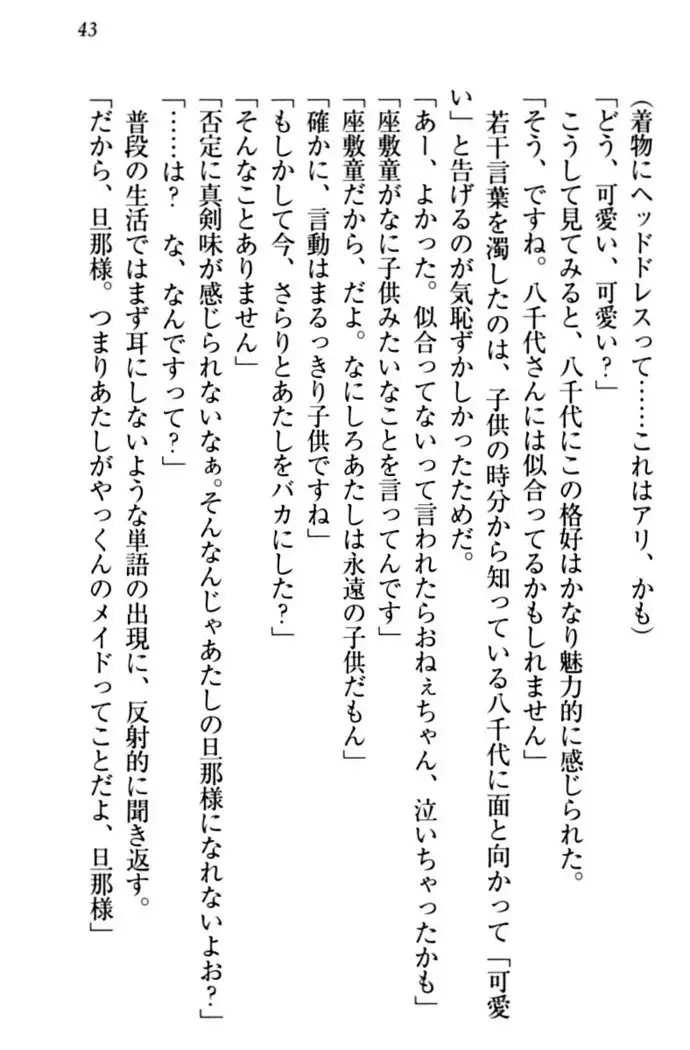 43
（着物にヘッドドレスって……これはアリ、かも）
「どう、可愛い、可愛い？」
こうして見てみると、八千代にこの格好はかなり魅力的に感じられた。
「そう、ですね。八千代さんには似合ってるかもしれません」
若干言葉を濁したのは、子供の時分から知っている八千代に面と向かって「可愛
い」と告げるのが気恥ずかしかったためだ。
「あー、よかった。似合ってないって言われたらおねぇちゃん、泣いちゃったかも」
「座敷童がなに子供みたいなことを言ってんです」
「座敷童だから、だよ。なにしろあたしは永遠の子供だもん」
「確かに、言動はまるっきり子供ですね」
「もしかして今、さらりとあたしをバカにした？」
「そんなことありません」
「否定に真剣味が感じられないなぁ。そんなんじゃあたしの旦那様になれないよお？」
「……は？　な、なんですって？」
普段の生活ではまず耳にしないような単語の出現に、反射的に聞き返す。
「だから、旦那様。つまりあたしがやっくんのメイドってことだよ、旦那様」